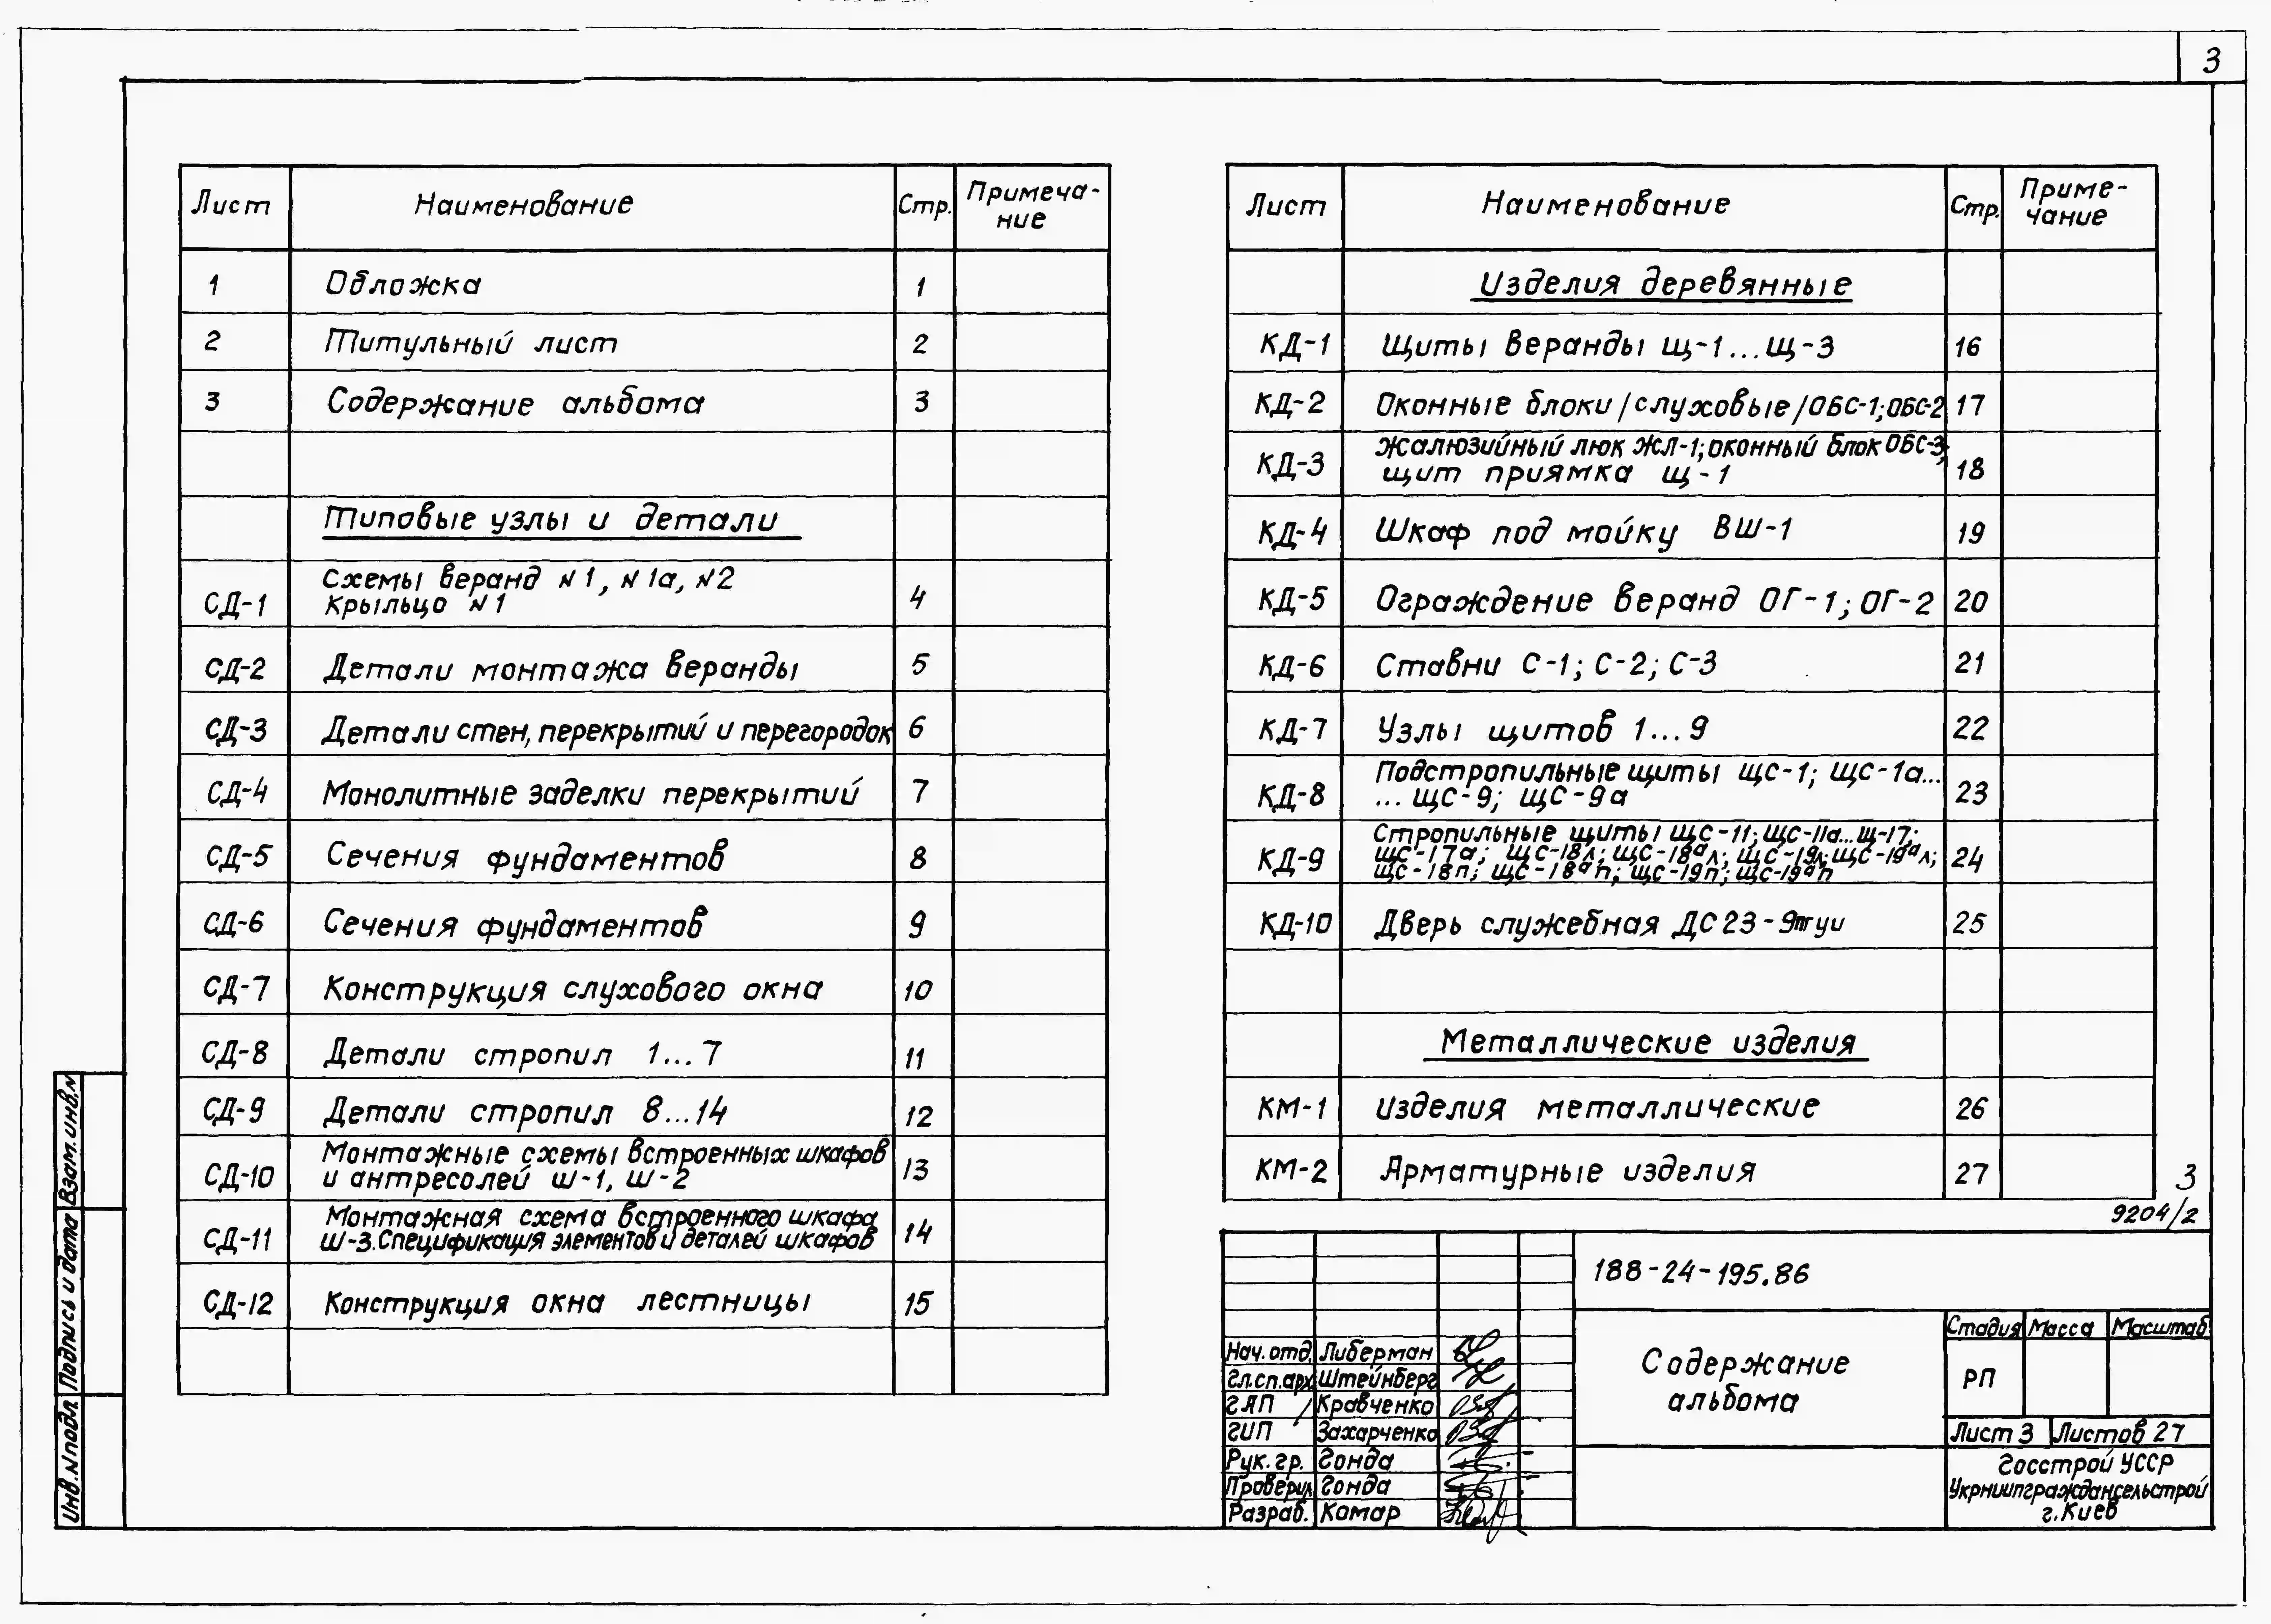 3
Лист Наименование Стр. Примеча-
ние
1 Обложка 1
2 Титульный лист 2
3 Содержание альбома 3
Типовые узлы и детали
СД-1 Схемы веранд №1, №1а, №2
Крыльцо №1 4
СД-2 Детали монтажа веранды 5
СД-3 Детали стен, перекрытий и перегородок 6
СД-4 Монолитные заделки перекрытий 7
СД-5 Сечения фундаментов 8
СД-6 Сечения фундаментов 9
СД-7 Конструкция слухового окна 10
СД-8 Детали стропил 1...7 11
СД-9 Детали стропил 8...14 12
СД-10 Монтажные схемы встроенных шкафов
и антресолей Ш-1, Ш-2 13
СД-11 Монтажная схема встроенного шкафа
Ш-3. Спецификация элементов и деталей шкафов 14
СД-12 Конструкция окна лестницы 15
Лист Наименование Стр. Приме-
чание
Изделия деревянные
КД-1 Щиты веранды щ-1...щ-3 16
КД-2 Оконные блоки /слуховые/ ОБС-1; ОБС-2 17
КД-3 Жалюзийный люк ЖЛ-1; оконный блок ОБС-3;
щит приямка щ-1 18
КД-4 Шкаф под мойку ВШ-1 19
КД-5 Ограждение веранд ОГ-1; ОГ-2 20
КД-6 Ставни С-1; С-2; С-3 21
КД-7 Узлы щитов 1...9 22
КД-8 Подстропильные щиты щс-1; щс-1а...
...щс-9; щс-9а 23
КД-9 Стропильные щиты щс-11; щс-11а...щ-17;
щс-17а; щс-18л; щс-18ал; щс-19л; щс-19ал;
щс-18п; щс-18ап; щс-19п; щс-19ап 24
КД-10 Дверь служебная ДС 23-9пгуи 25
Металлические изделия
КМ-1 Изделия металлические 26
КМ-2 Арматурные изделия 27
3
9204/2
188-24-195.86
Содержание
альбома
Стадия Масса Масштаб
РП
Лист 3 Листов 27
Госстрой УССР
Укрниипграждансельстрой
г. Киев
Нач. отд. Либерман
Гл.сп.арх Штейнберг
ГАП Кравченко
ГИП Захарченко
Рук. гр. Гонда
Проверил Гонда
Разраб. Комар
Взам. инв. №
Подпись и дата
Инв. № подл.